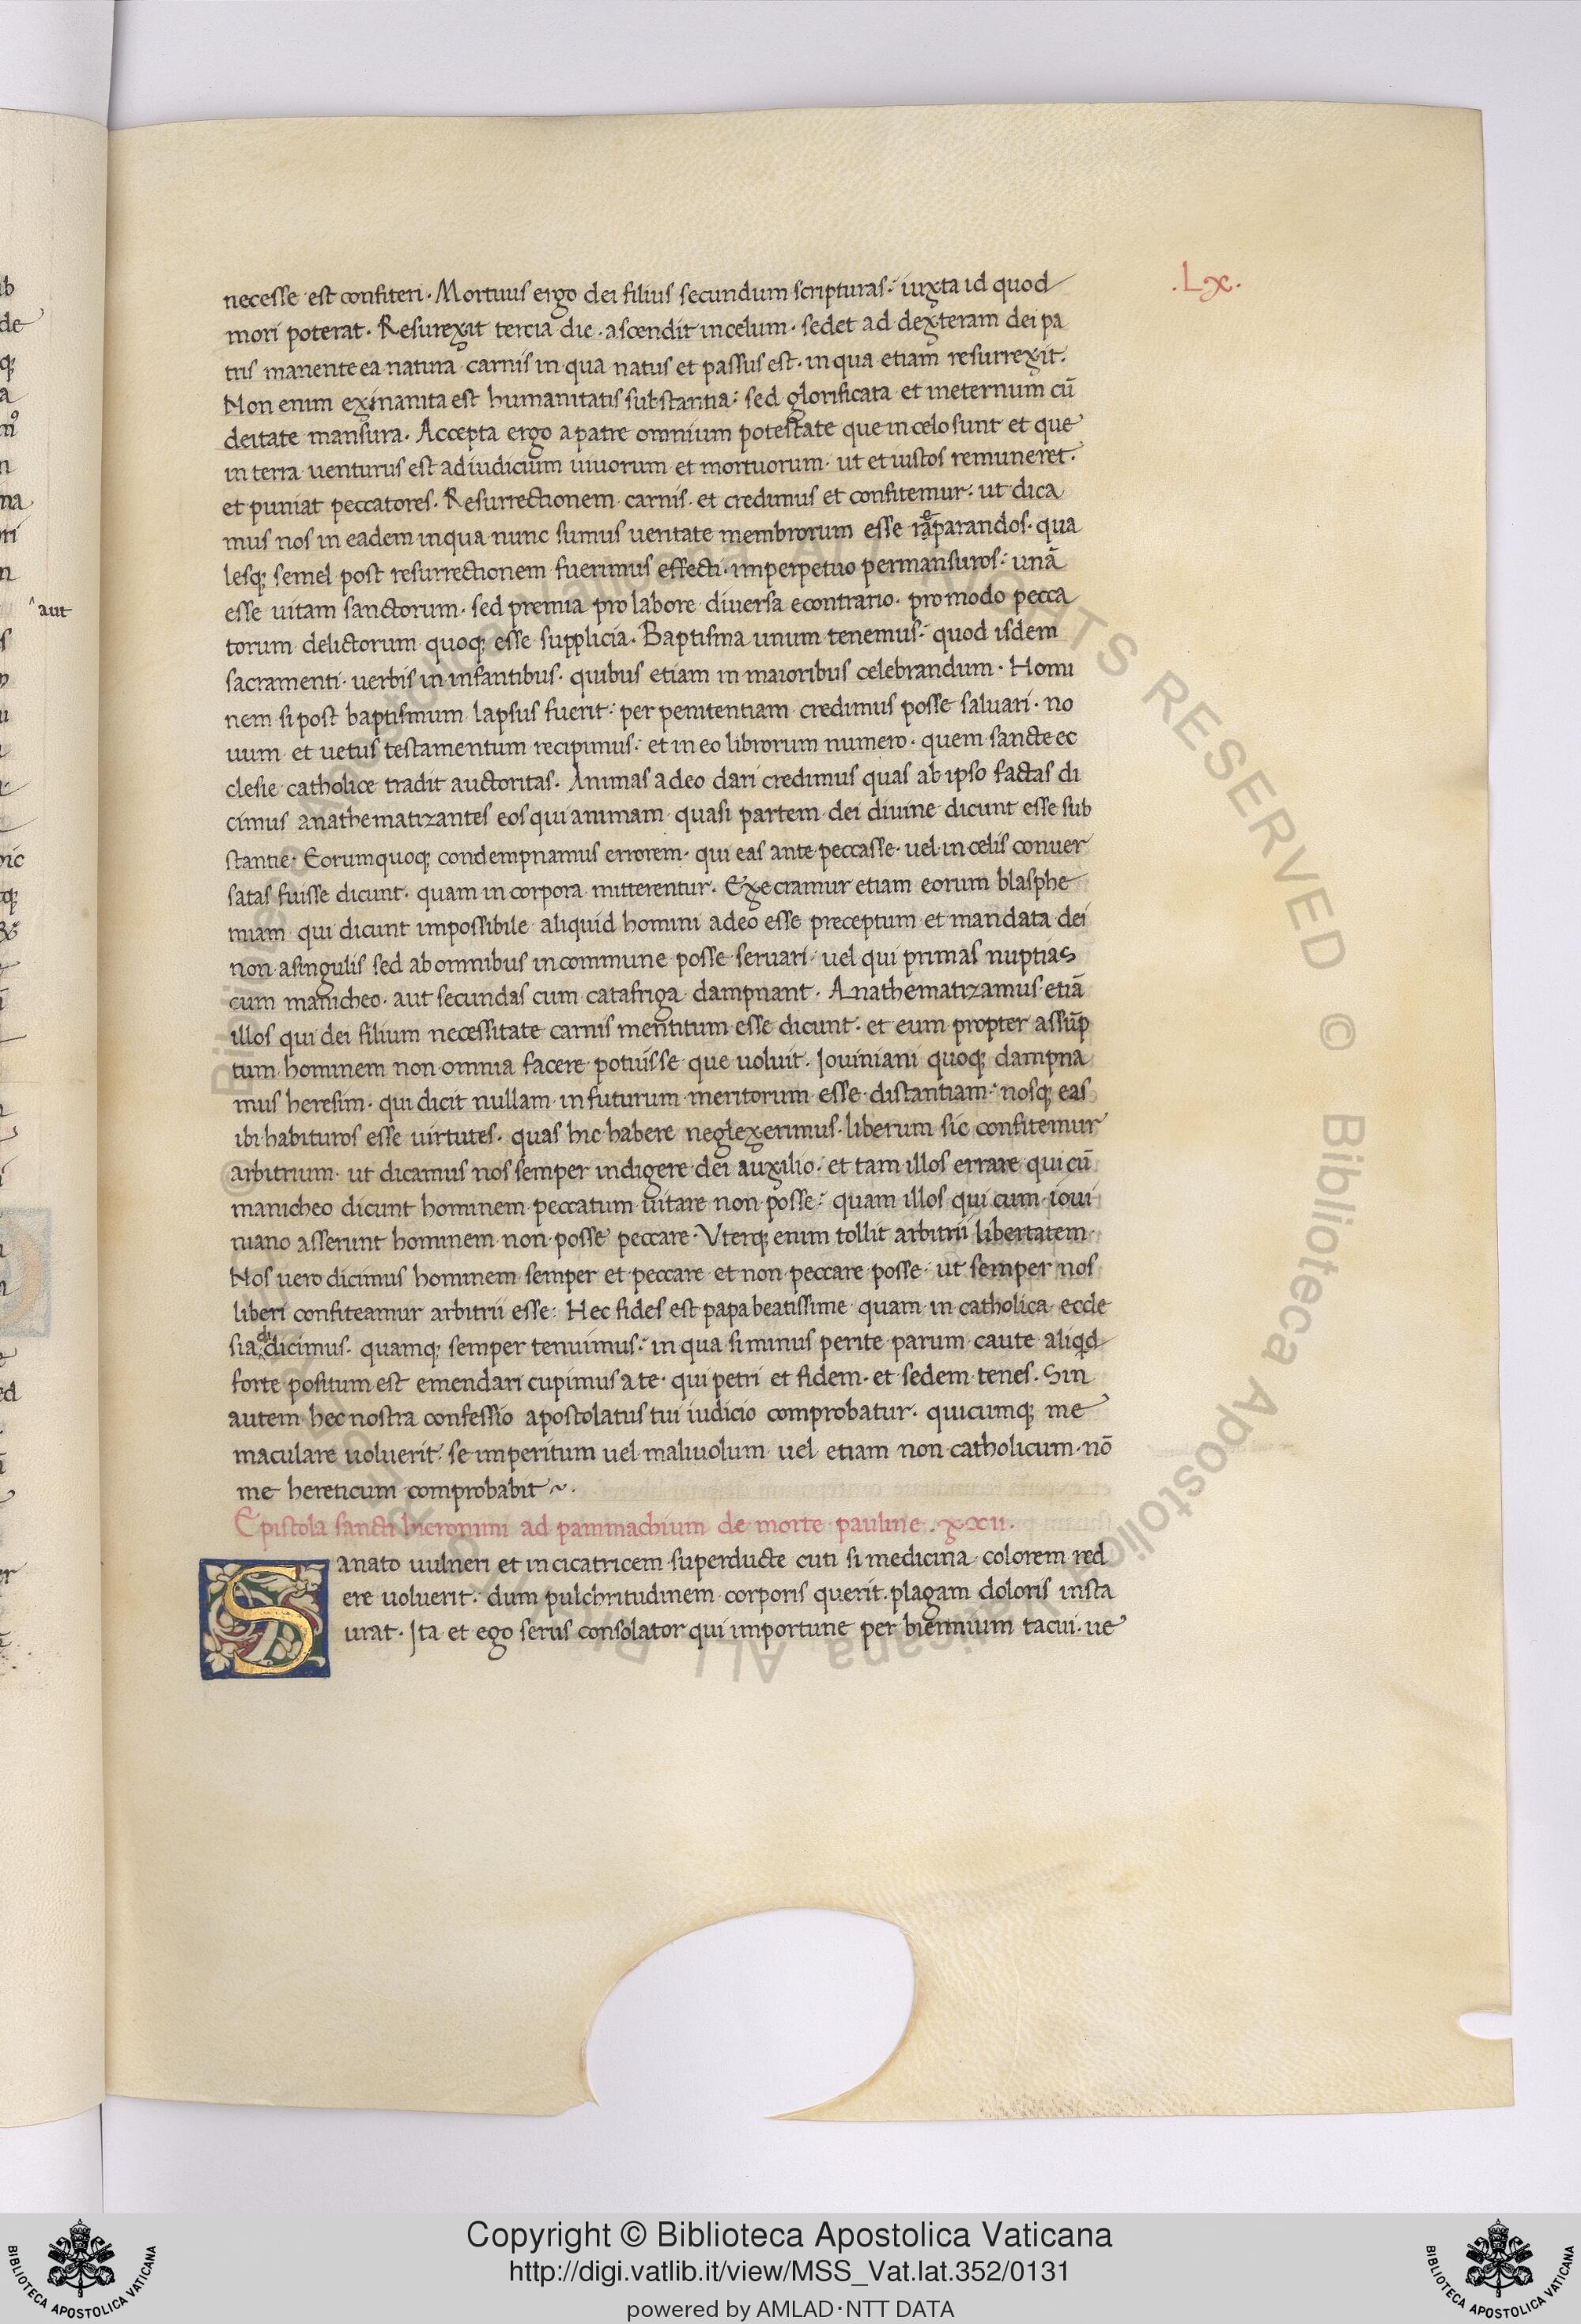 .Lx.
necesse est confiteri. Mortuus ergo dei filius secundum scripturas: iuxta id quod
mori poterat. Resurexit tercia die. ascendit in celum. sedet ad dexteram dei pa
tris manente ea natura carnis in qua natus et passus est. in qua etiam resurrexit.
Non enim exinanita est humanitatis substantia: sed glorificata et ineternum cū
deitate mansura. Accepta ergo a patre omnium potestate que in celo sunt et que
in terra uenturus est ad iudicium uiuorum et mortuorum. ut et iustos remuneret.
et puniat peccatores. Resurrectionem carnis. et credimus et confitemur. ut dica
mus nos in eadem in qua nunc sumus ueritate membrorum esse raeparandos. qua
lesq; semel post resurrectionem fuerimus effecti. imperpetuo permansuros: unā
esse uitam sanctorum. sed premia pro labore diuersa econtrario. pro modo pecca
torum delictorum quoq; esse supplicia. Baptisma unum tenemus: quod isdem
sacramenti uerbis in infantibus. quibus etiam in maioribus celebrandum. Homi
nem si post baptismum lapsus fuerit: per penitentiam credimus posse saluari. no
uum et uetus testamentum recipimus: et in eo librorum numero. quem sancte ec
clesie catholice tradit auctoritas. Animas a deo dari credimus quas ab ipso factas di
cimus anathematizantes eos qui animam quasi partem dei diuine dicunt esse sub
stantie. Eorum quoq; condempnamus errorem. qui eas ante peccasse. uel in celis conuer
satas fuisse dicunt. quam in corpora mitterentur. Execramur etiam eorum blasphe
miam qui dicunt impossibile aliquid homini a deo esse preceptum et mandata dei
non a singulis sed ab omnibus in commune posse seruari: uel qui primas nuptias
cum manicheo. aut secundas cum catafriga dampnant. Anathematizamus etiā
illos qui dei filium necessitate carnis mentitum esse dicunt. et eum propter assūp
tum hominem non omnia facere potuisse que uoluit. Iouiniani quoq; dampna
mus heresim. qui dicit nullam in futurum meritorum esse distantiam: nosq; eas
ibi habituros esse uirtutes. quas hic habere neglexerimus. liberum sic confitemur
arbitrium. ut dicamus nos semper indigere dei auxilio: et tam illos errare qui cū
manicheo dicunt hominem peccatum uitare non posse: quam illos qui cum ioui
niano asserunt hominem non posse peccare. Vterq; enim tollit arbitrii libertatem.
Nos uero dicimus hominem semper et peccare et non peccare posse. ut semper nos
liberi confiteamur arbitrii esse: Hec fides est papa beatissime quam in catholica eccle
sia didicimus. quamq; semper tenuimus: in qua si minus perite parum caute aliqd
forte positum est emendari cupimus a te. qui petri et fidem. et sedem tenes. Sin
autem hec nostra confessio apostolatus tui iudicio comprobatur. quicumq; me
maculare uoluerit: se imperitum uel maliuolum uel etiam non catholicum. nō
me hereticum comprobabit ~.
Epistola sancti hieronimi ad pammachium de morte pauline. xxii.
Sanato uulneri et in cicatricem superducte cuti si medicina colorem red
ere uoluerit: dum pulchritudinem corporis querit. plagam doloris insta
urat. Ita et ego serus consolator qui importune per biennium tacui. ue
aut
© Biblioteca Apostolica Vaticana ALL RIGHTS RESERVED © Biblioteca Apostolica Vaticana ALL RIGHTS RESERVED
Copyright © Biblioteca Apostolica Vaticana
http://digi.vatlib.it/view/MSS_Vat.lat.352/0131
powered by AMLAD·NTT DATA
BIBLIOTECA APOSTOLICA VATICANA
BIBLIOTECA APOSTOLICA VATICANA